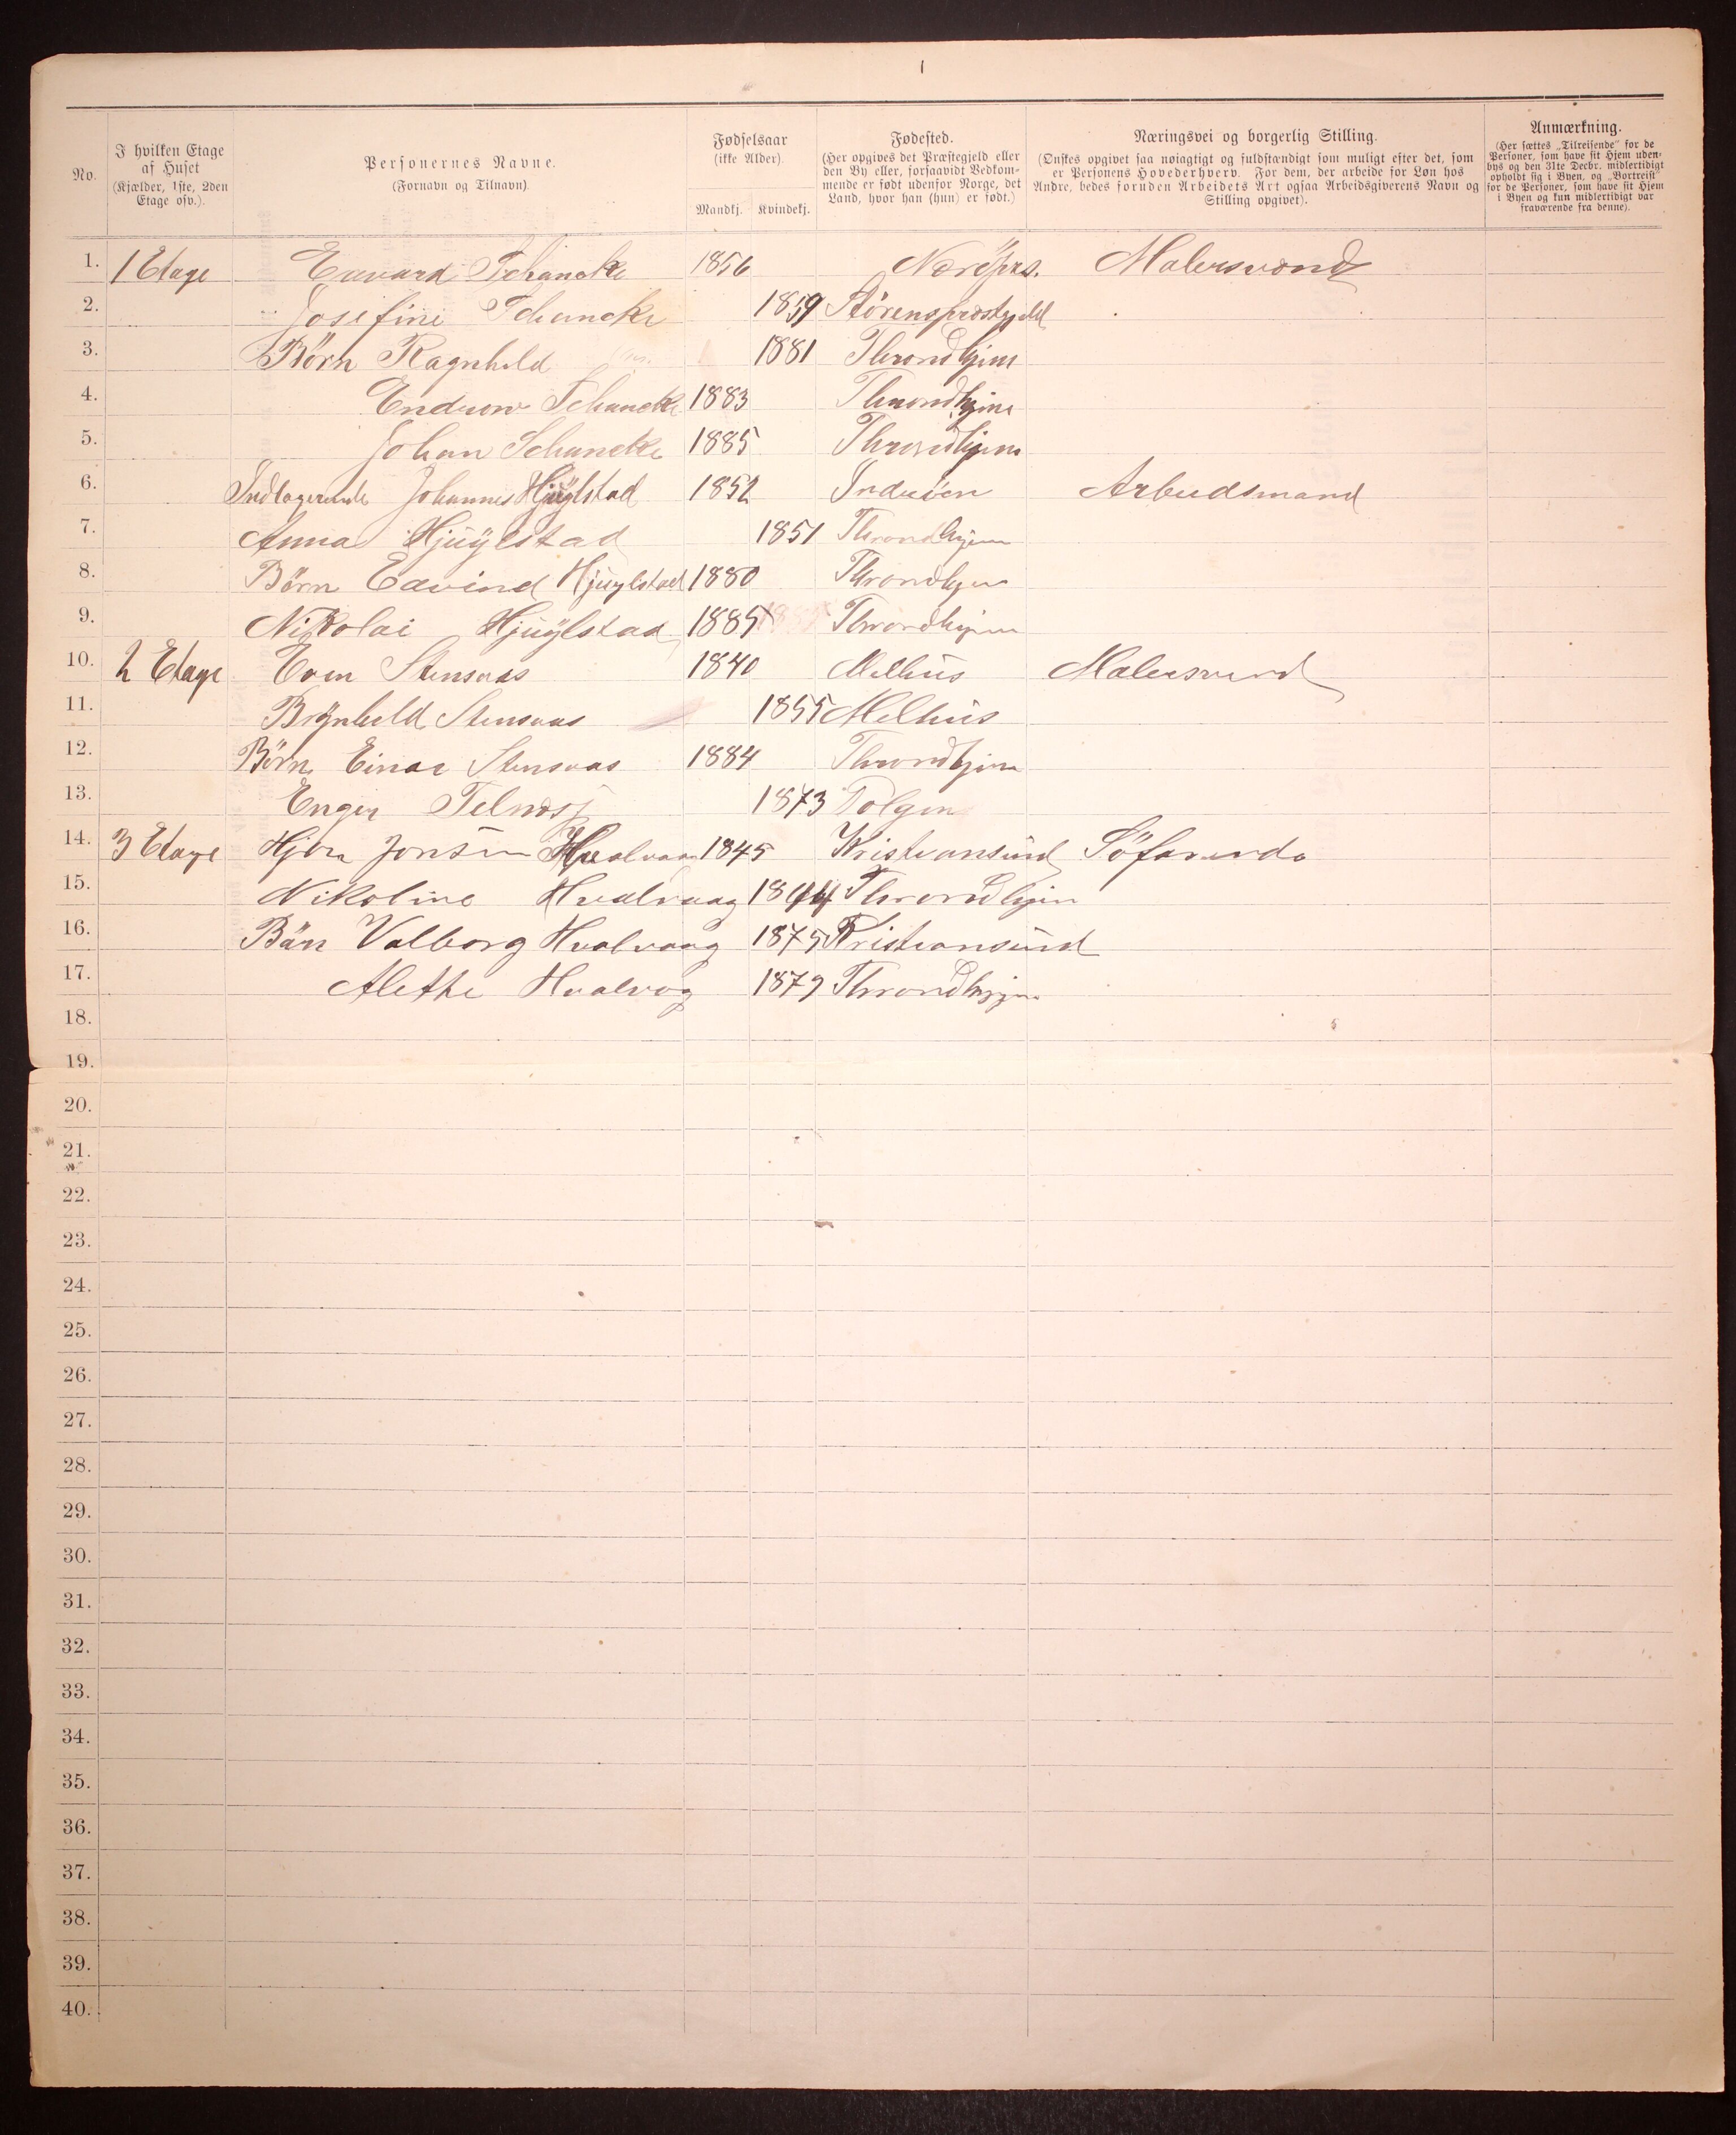 1
No.
I hvilken Etage
af Huset
(Kjælder, 1ste, 2den
Etage osv.).
Personernes Navne.
(Fornavn og Tilnavn).
Fødselsaar
(ikke Alder).
Mandkj. Kvindekj.
Fødested.
(Her opgives det Præstegjeld eller
den By eller, forsaavidt Vedkom-
mende er født udenfor Norge, det
Land, hvor han (hun) er født.)
Næringsvei og borgerlig Stilling.
(Ønskes opgivet saa nøiagtigt og fuldstændigt som muligt efter det, som
er Personens Hovederhverv. For dem, der arbeide for Løn hos
Andre, bedes foruden Arbeidets Art ogsaa Arbeidsgiverens Navn og
Stilling opgivet).
Anmærkning.
(Her sættes „Tilreisende" for de
Personer, som have sit Hjem uden-
bys og den 31te Decbr. midlertidigt
opholdt sig i Byen, og „Bortreist"
for de Personer, som have sit Hjem
i Byen og kun midlertidigt var
fraværende fra denne).
1. 1 Etage Edvard Schancke 1856 Nöröprs. Malersvend
2. Josefine Schancke 1859 Störenspræstegjeld
3. Börn Ragnhild 1881 Throndhjem
4. Schancke 1883 Throndhjem
5. Johan Schancke 1885 Throndhjem
6. Indlogerende Johannes Hjüÿlstad 1852 Inderöen Arbeidsmand
7. Anna Hjüÿlstad 1851 Throndhjem
8. Börn Edvind Hjuylstad 1880 Throndhjem
9. Nikolai Hjüÿlstad 1885 Throndhjem
10. 2 Etage Even Stensaas 1840 Melhüs Malersvend
11. Brÿnhild Stensaas 1855 Melhüs
12. Börn Einar Stensaas 1884 Throndhjem
13. Enger 1873 Tolgen
14. 3 Etage Jonsen Hvalvaag 1845 Kristiansünd Söfarende
15. Nikoline Hvalvaag 1844 Throndhjem
16. Börn Valborg Hvalvaag 1875 Kristiansünd
17. Alethe Hvalvog 1879 Throndhjem
18.
19.
20.
21.
22.
23.
24.
25.
26.
27.
28.
29.
30.
31.
32.
33.
34.
35.
36.
37.
38.
39.
40.